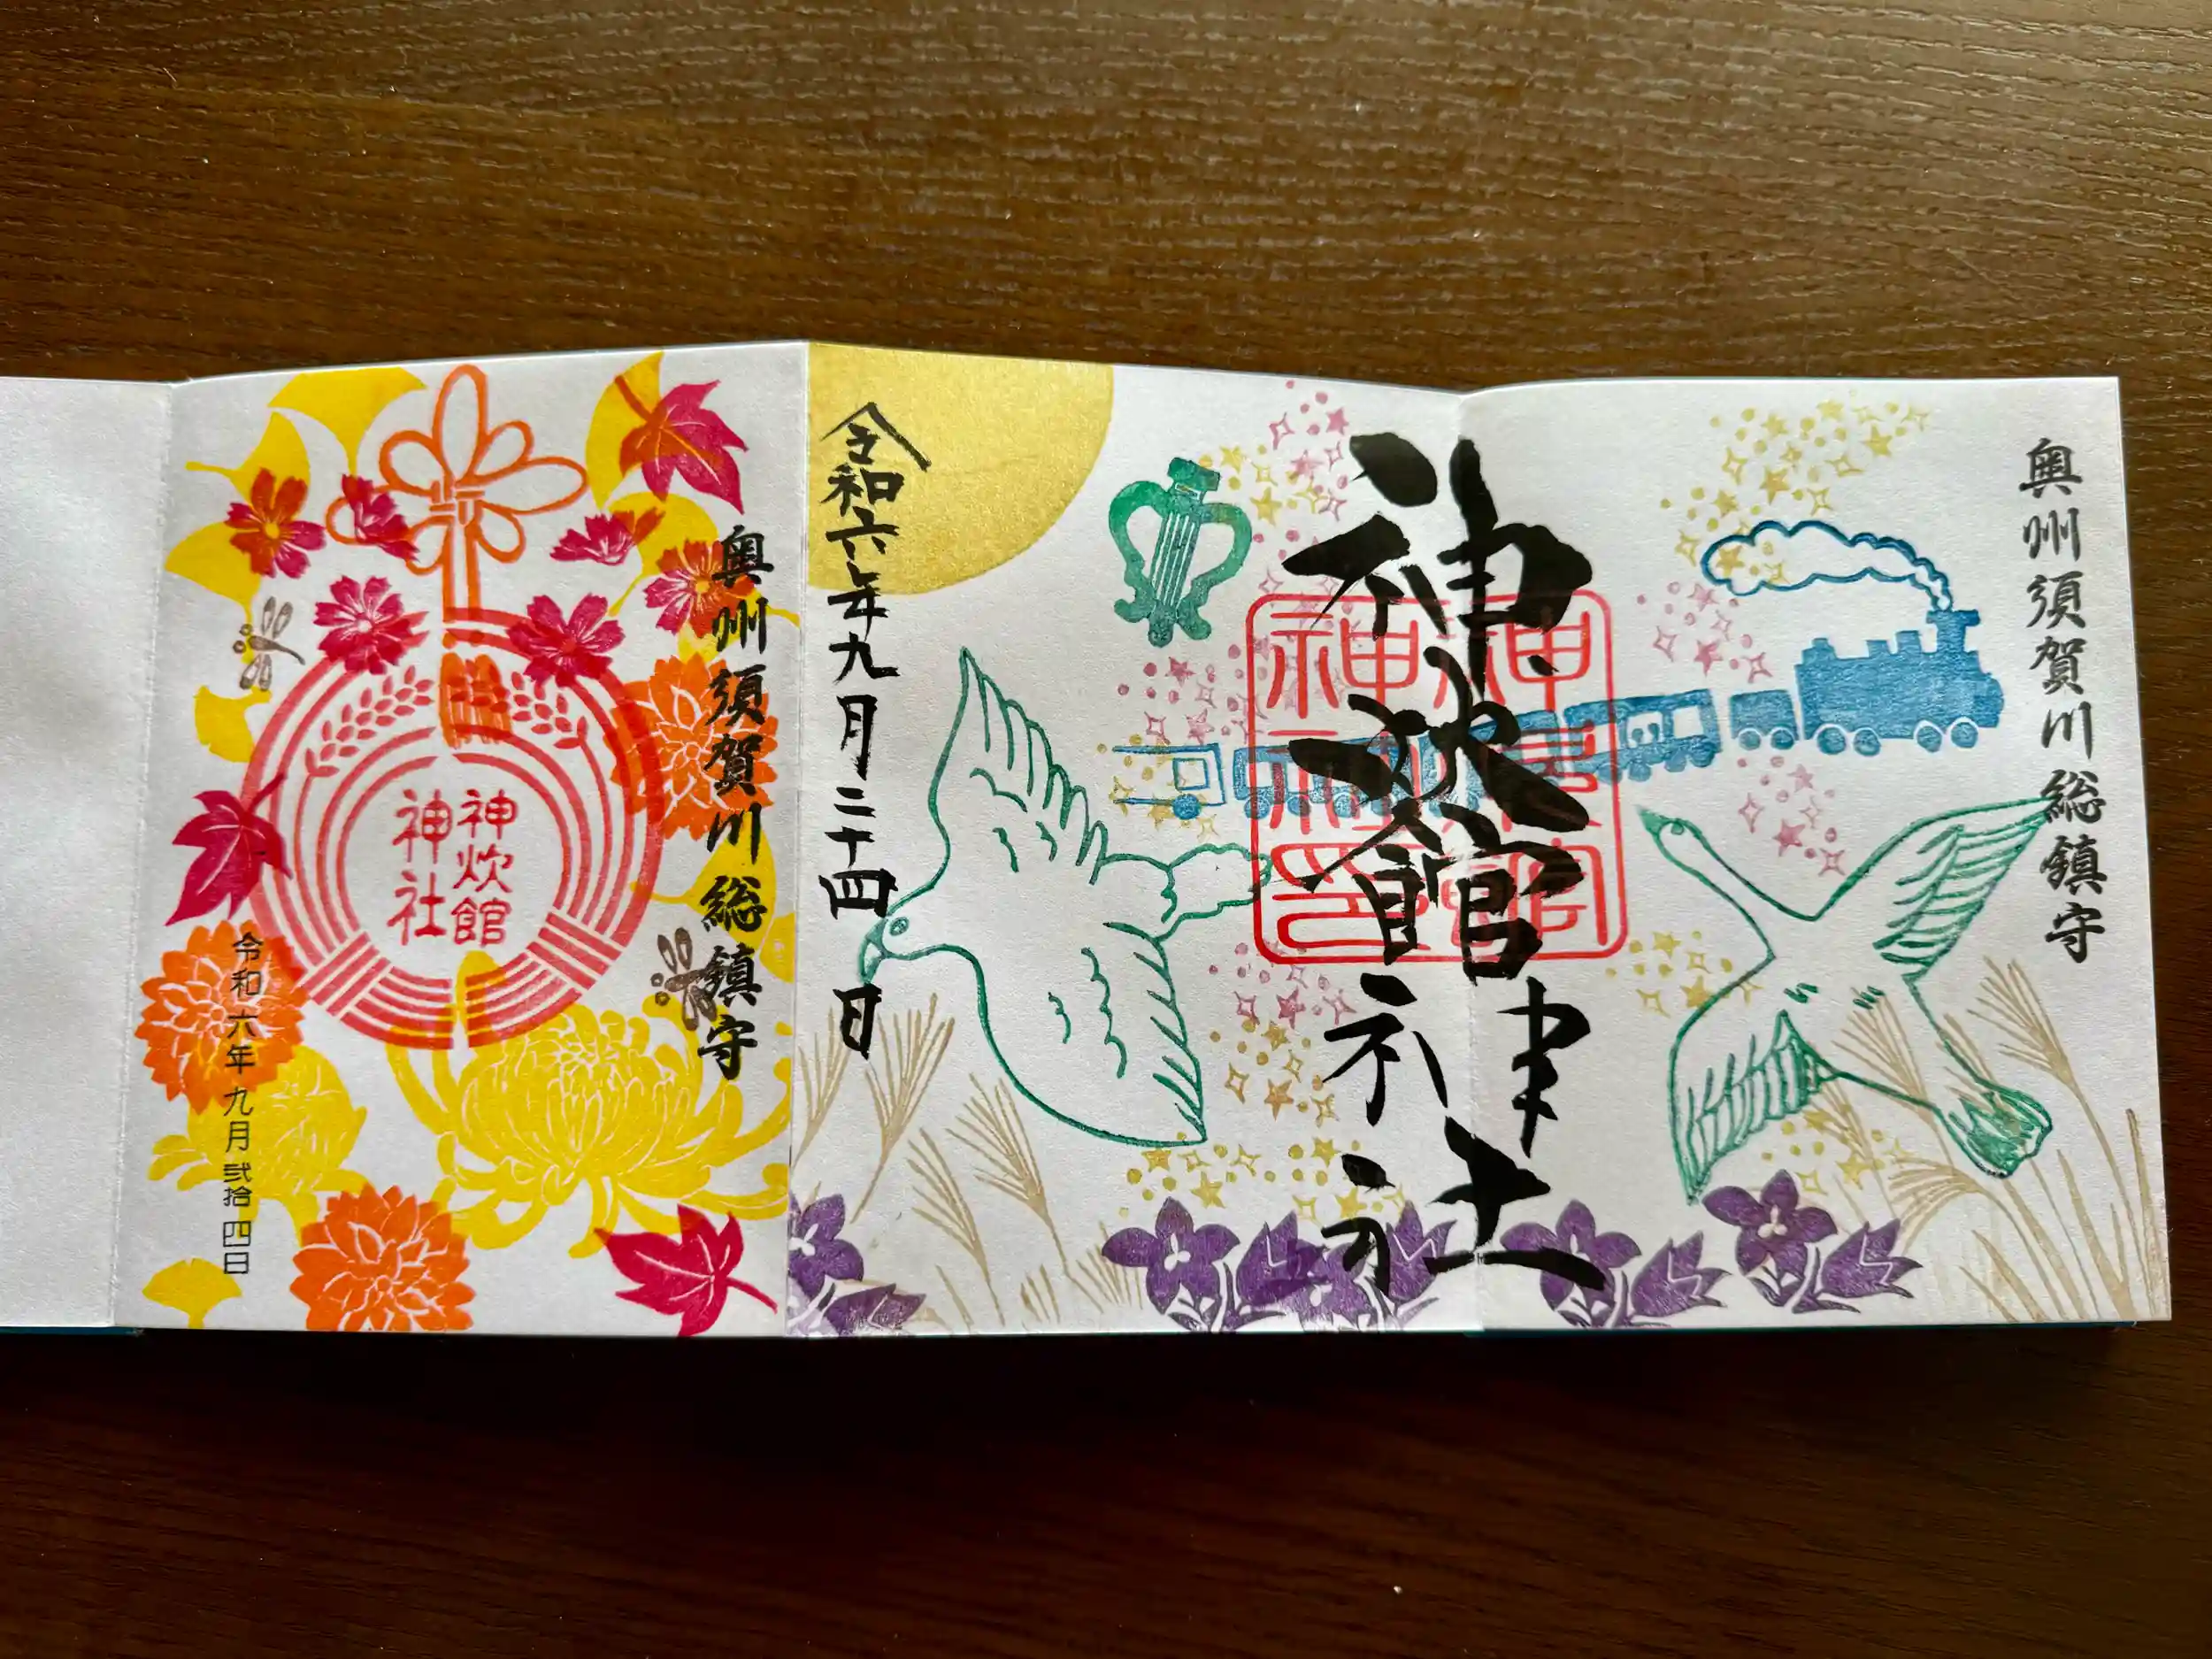 奥州須賀川総鎮守
神炊館神社
令和六年九月二十四日
奥州須賀川総鎮守
神炊館
神社
令和六年九月弐拾四日